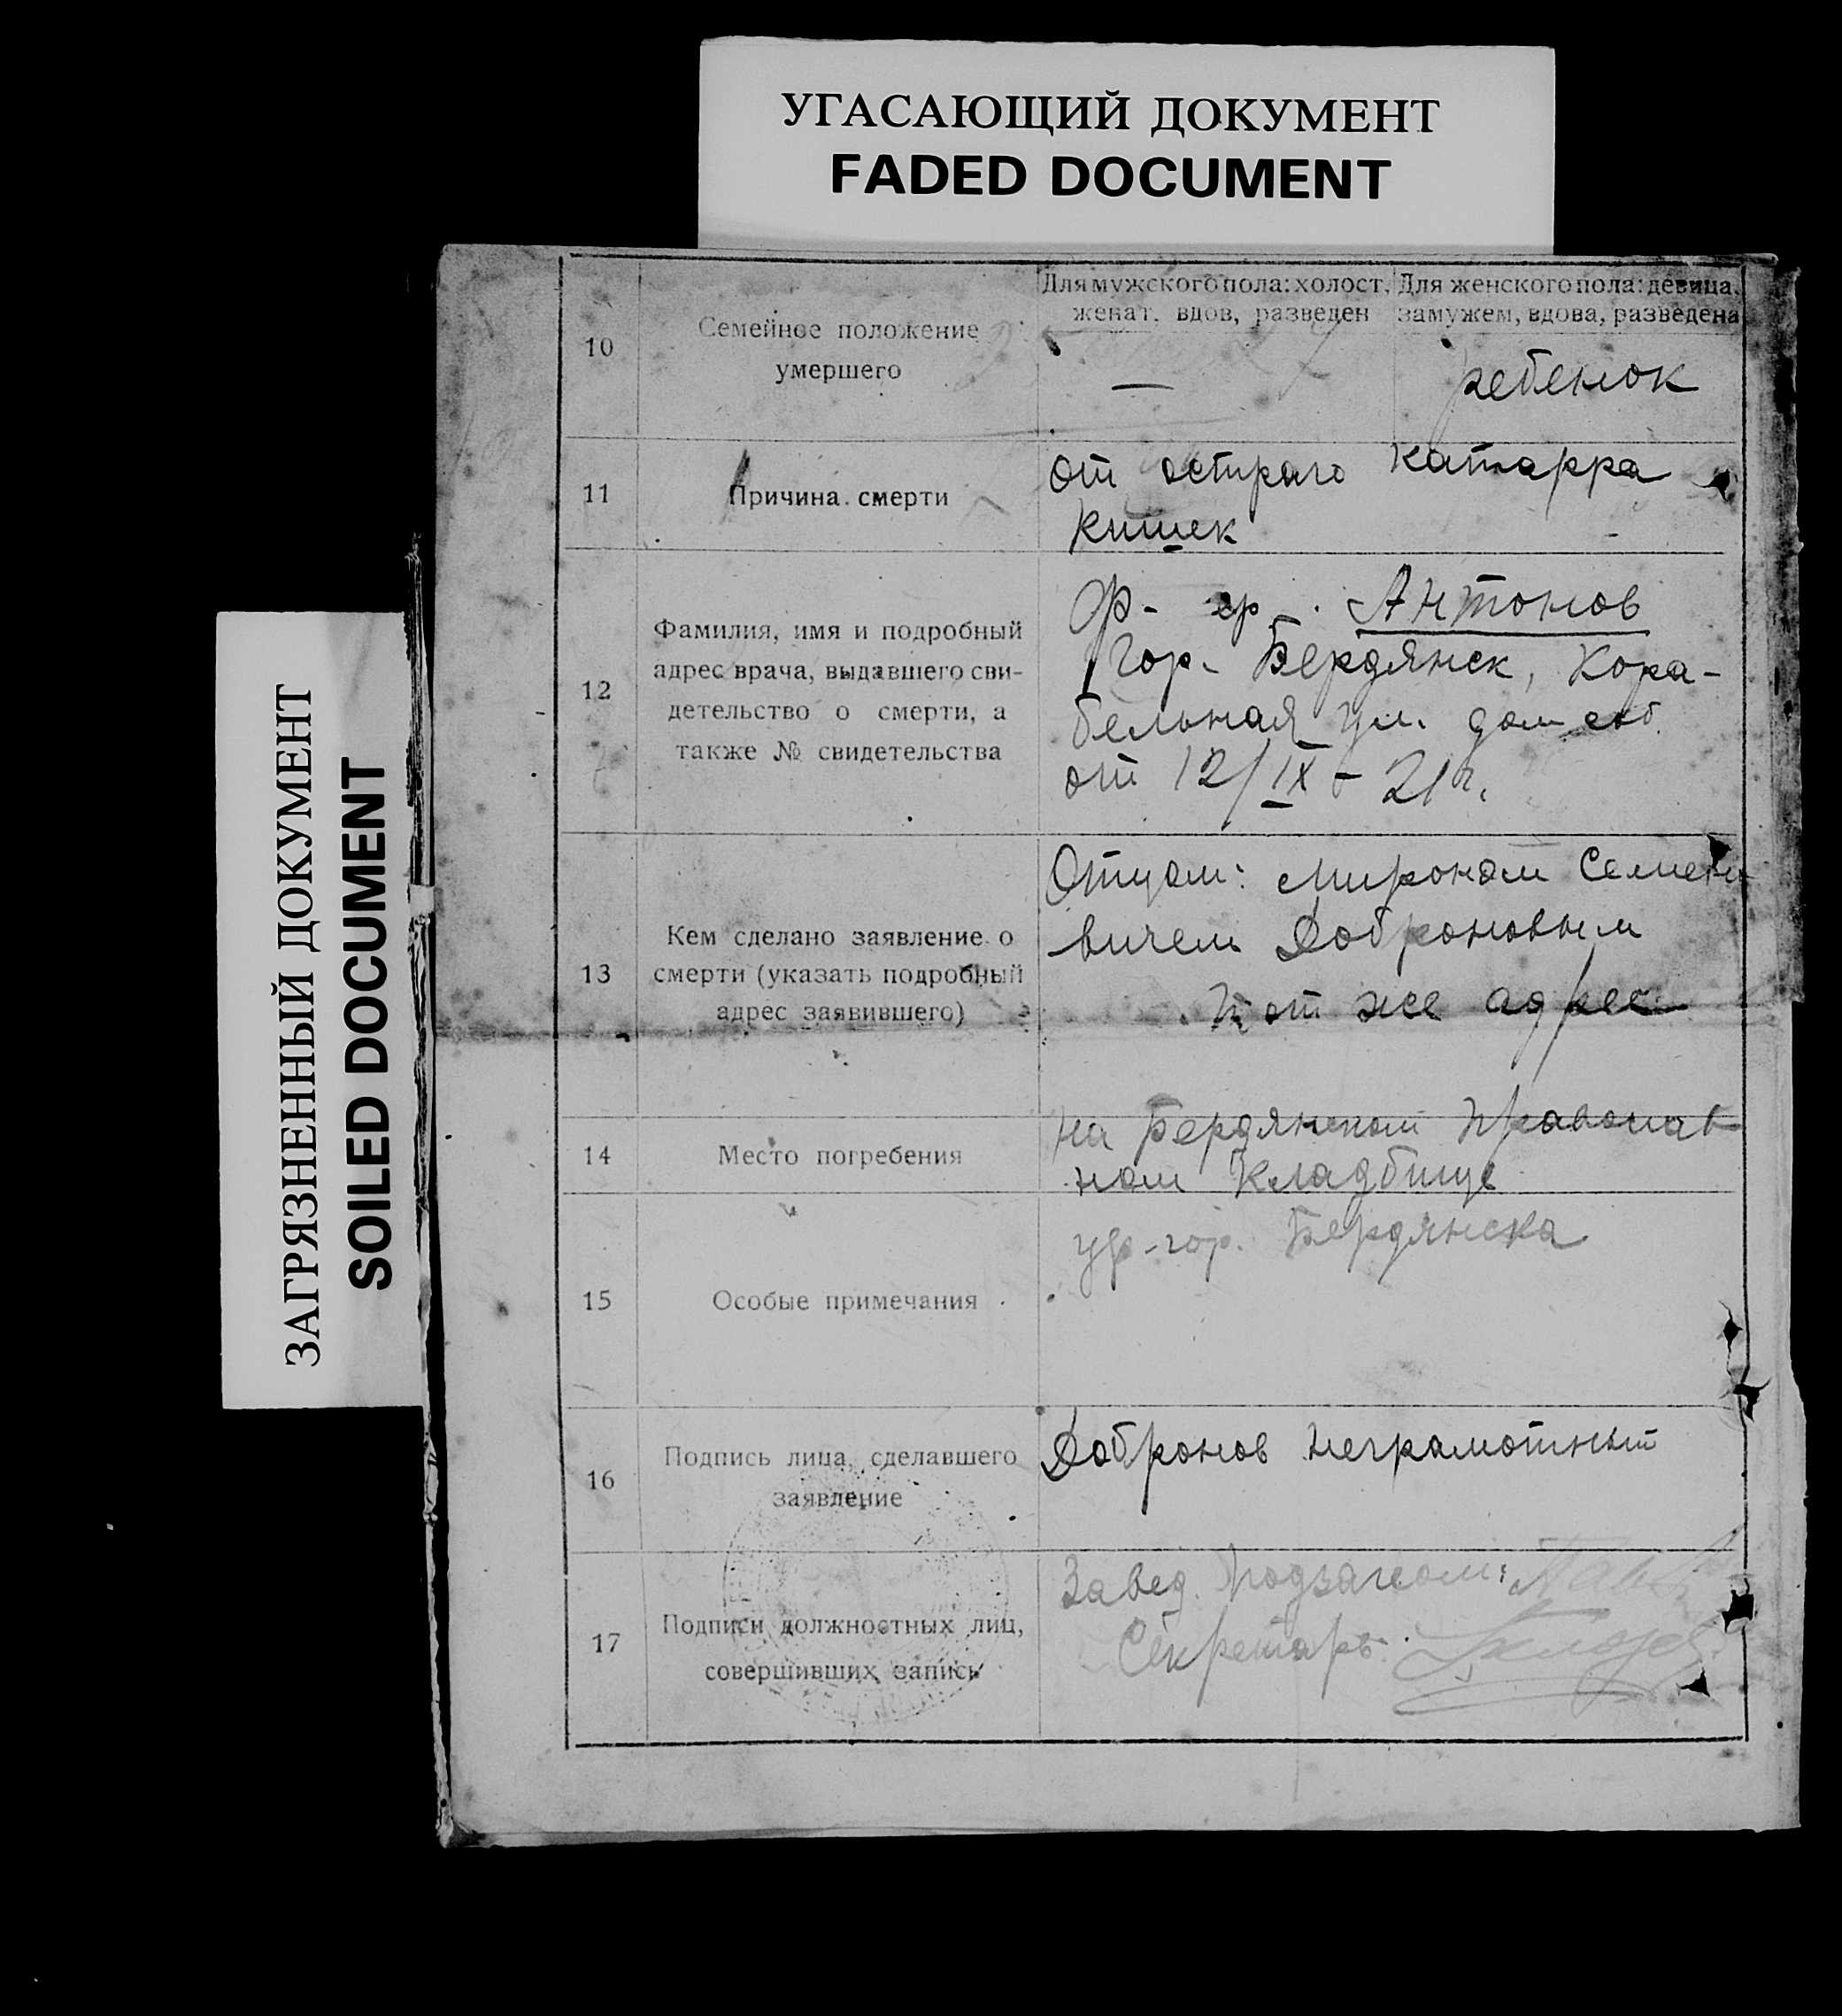 УГАСАЮЩИЙ ДОКУМЕНТ
FADED DOCUMENT
ЗАГРЯЗНЕННЫЙ ДОКУМЕНТ
SOILED DOCUMENT
10
Семейное положение
умершего
Для мужского пола: холост,
женат, вдов, разведен
—
Для женского пола: девица,
замужем, вдова, разведена
ребенок
11
Причина смерти
от острого катарра
кишек
12
Фамилия, имя и подробный
адрес врача, выдавшего сви-
детельство о смерти, а
также № свидетельства
Антонов
Гор. Бердянск, Кора-
бельная ул. дом соб.
от 12/IX - 21 г.
13
Кем сделано заявление о
смерти (указать подробный
адрес заявившего)
Отцом: Мироном Семено
вичем Доброновым
тот же адрес
14
Место погребения
на Бердянском Православ
ном кладбище
15
Особые примечания
ур. гор. Бердянска
16
Подпись лица, сделавшего
заявление
Добронов неграмотный
17
Подписи должностных лиц,
совершивших запись
Завед. Подзагсом:
Секретарь: